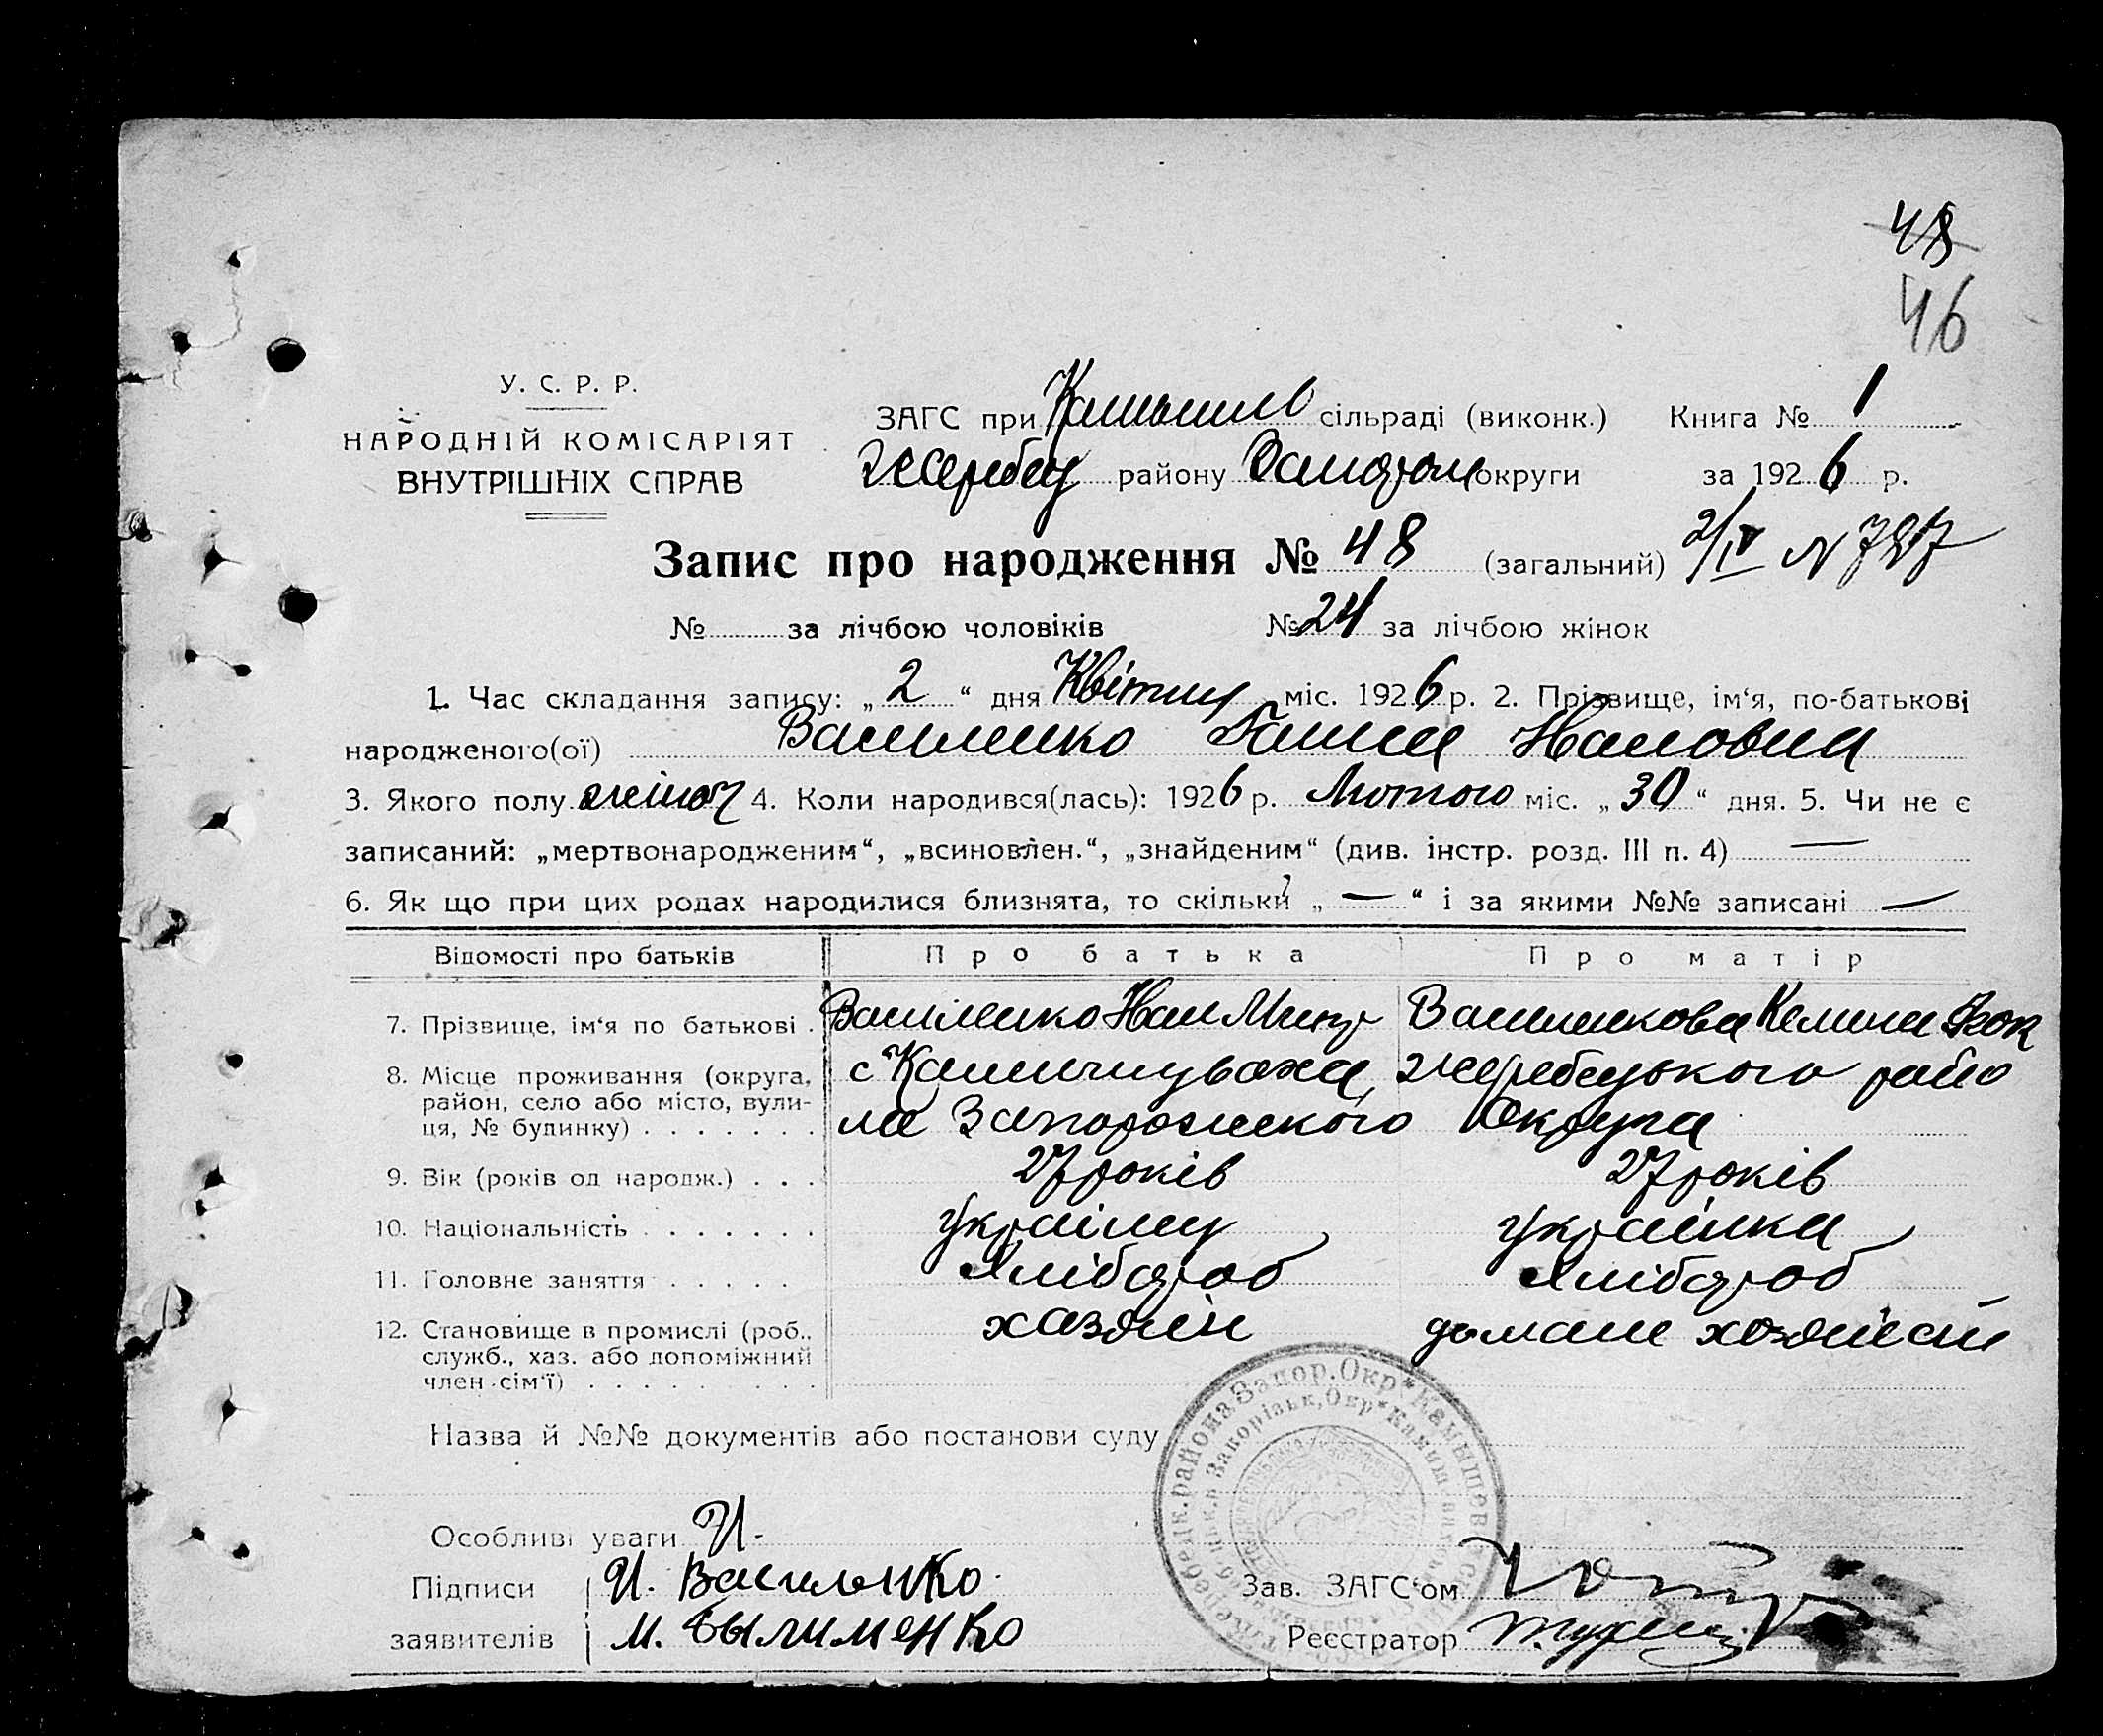 48
46
У. С. Р. Р.
НАРОДНІЙ КОМІСАРІЯТ
ВНУТРІШНІХ СПРАВ
ЗАГС при Камышив сільраді (виконк.) Книга № 1
Жеребец району округи за 1926 р.
Запис про народження № 48 (загальний) 2/IV N 787
№ за лічбою чоловіків № 24 за лічбою жінок
1. Час складання запису: „ 2 “ дня Квітня міс. 1926 р. 2. Прізвище, ім‘я, по-батькові
народженого(ої) Василенко Ганна Ивановна
3. Якого полу жіноч 4. Коли народився(лась): 1926 р. Лютого міс. „ 30 “ дня. 5. Чи не є
записаний: „мертвонародженим“, „всиновлен.“, „знайденим“ (див. інстр. розд. III п. 4) —
6. Як що при цих родах народилися близнята, то скільки „ — “ і за якими №№ записані —
Відомості про батьків Про батька Про матір
7. Прізвище, ім‘я по батькові . Василенко Иван
8. Місце проживання (округа, район, село або місто, вулиця, № будинку) . . . . . . .
с Камишуваха, Жеребецького райо
на Запорожского Округа
9. Вік (років од народж.) . . . 27 років 27 років
10. Національність . . . . . . . українец українка
11. Головне заняття . . . . . Хлібороб Хлібороб
12. Становище в промислі (роб., служб., хаз. або допоміжний член сім‘ї) . . . . . . . . .
хазяїн
Назва й №№ документів або постанови суду
Особливі уваги И-
Підписи И. Василенко
заявителів М. Былименко
Зав. ЗАГС‘ом
Реєстратор